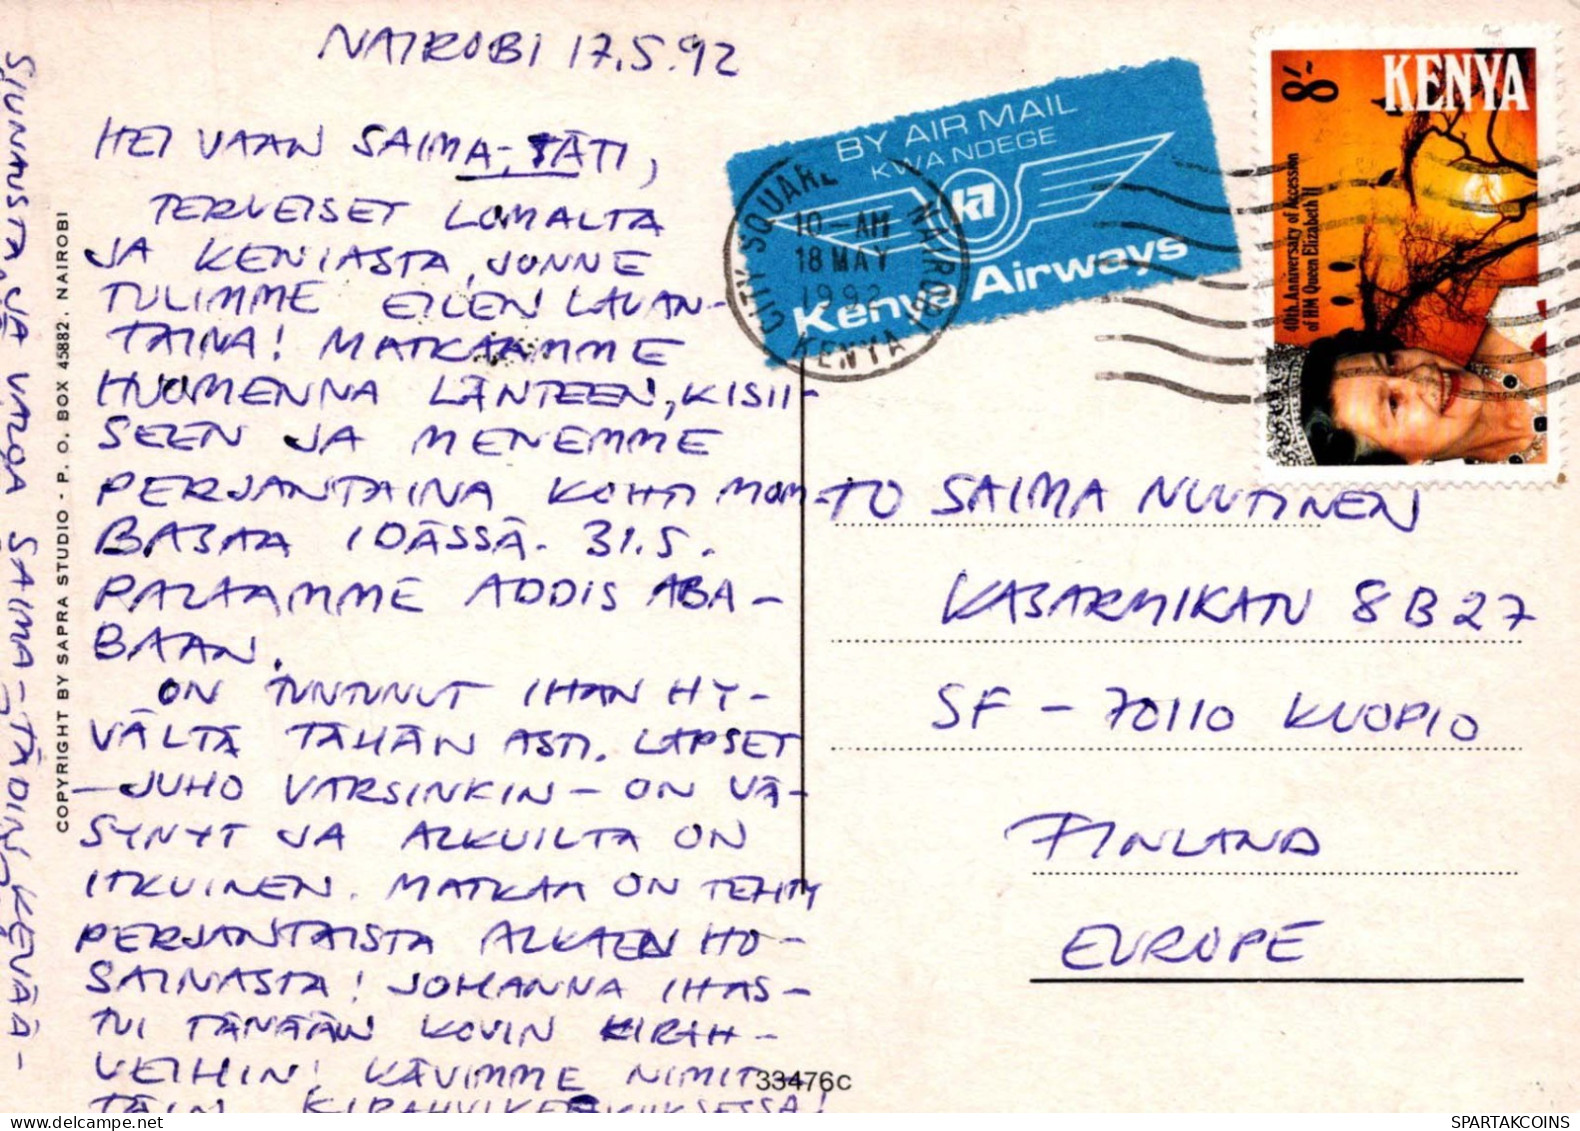 NAIROBI 17.5.92
HEI VAAN SAIMA-TÄTI,
TERVEISET LOMALTA
JA KENIASTA, JONNE
TULIMME EILEN LAUAN-
TAINA! MATKAAMME
HUOMENNA LÄNTEEN, KISII-
SEEN JA MENEMME
PERJANTAINA KOHTI MOM-
BASAA IDÄSSÄ. 31.5.
PALAAMME ADDIS ABA-
BAAN.
ON TUNTUNUT IHAN HY-
VÄLTÄ TÄHÄN ASTI. LAPSET
- JUHO VARSINKIN - ON VÄ-
SYNYT JA ALKUILTA ON
ITKUINEN. MATKAA ON TEHTY
PERJANTAISTA ALKAEN HO-
SAINASTA! JOHANNA IHAS-
TUI TÄNÄÄN KOVIN KIRAH-
VEIHIN! KÄVIMME NIMIT-
TÄIN KIRAHVIKESKUKSESSA!
SIUNAUSTA JA VALOA SAIMA-TÄDIN KEVÄÄ-
COPYRIGHT BY SAPRA STUDIO - P. O. BOX 45882, NAIROBI
33476c
BY AIR MAIL
KWA NDEGE
Kenya Airways
CITY SQUARE NAIROBI
10-AM
18 MAY
1992
KENYA
KENYA
8/-
40th Anniversary of Accession
of HM Queen Elizabeth II
TO SAIMA NUUTINEN
KASARMIKATU 8 B 27
SF - 70110 KUOPIO
FINLAND
EUROPE
SPARTAKCOINS